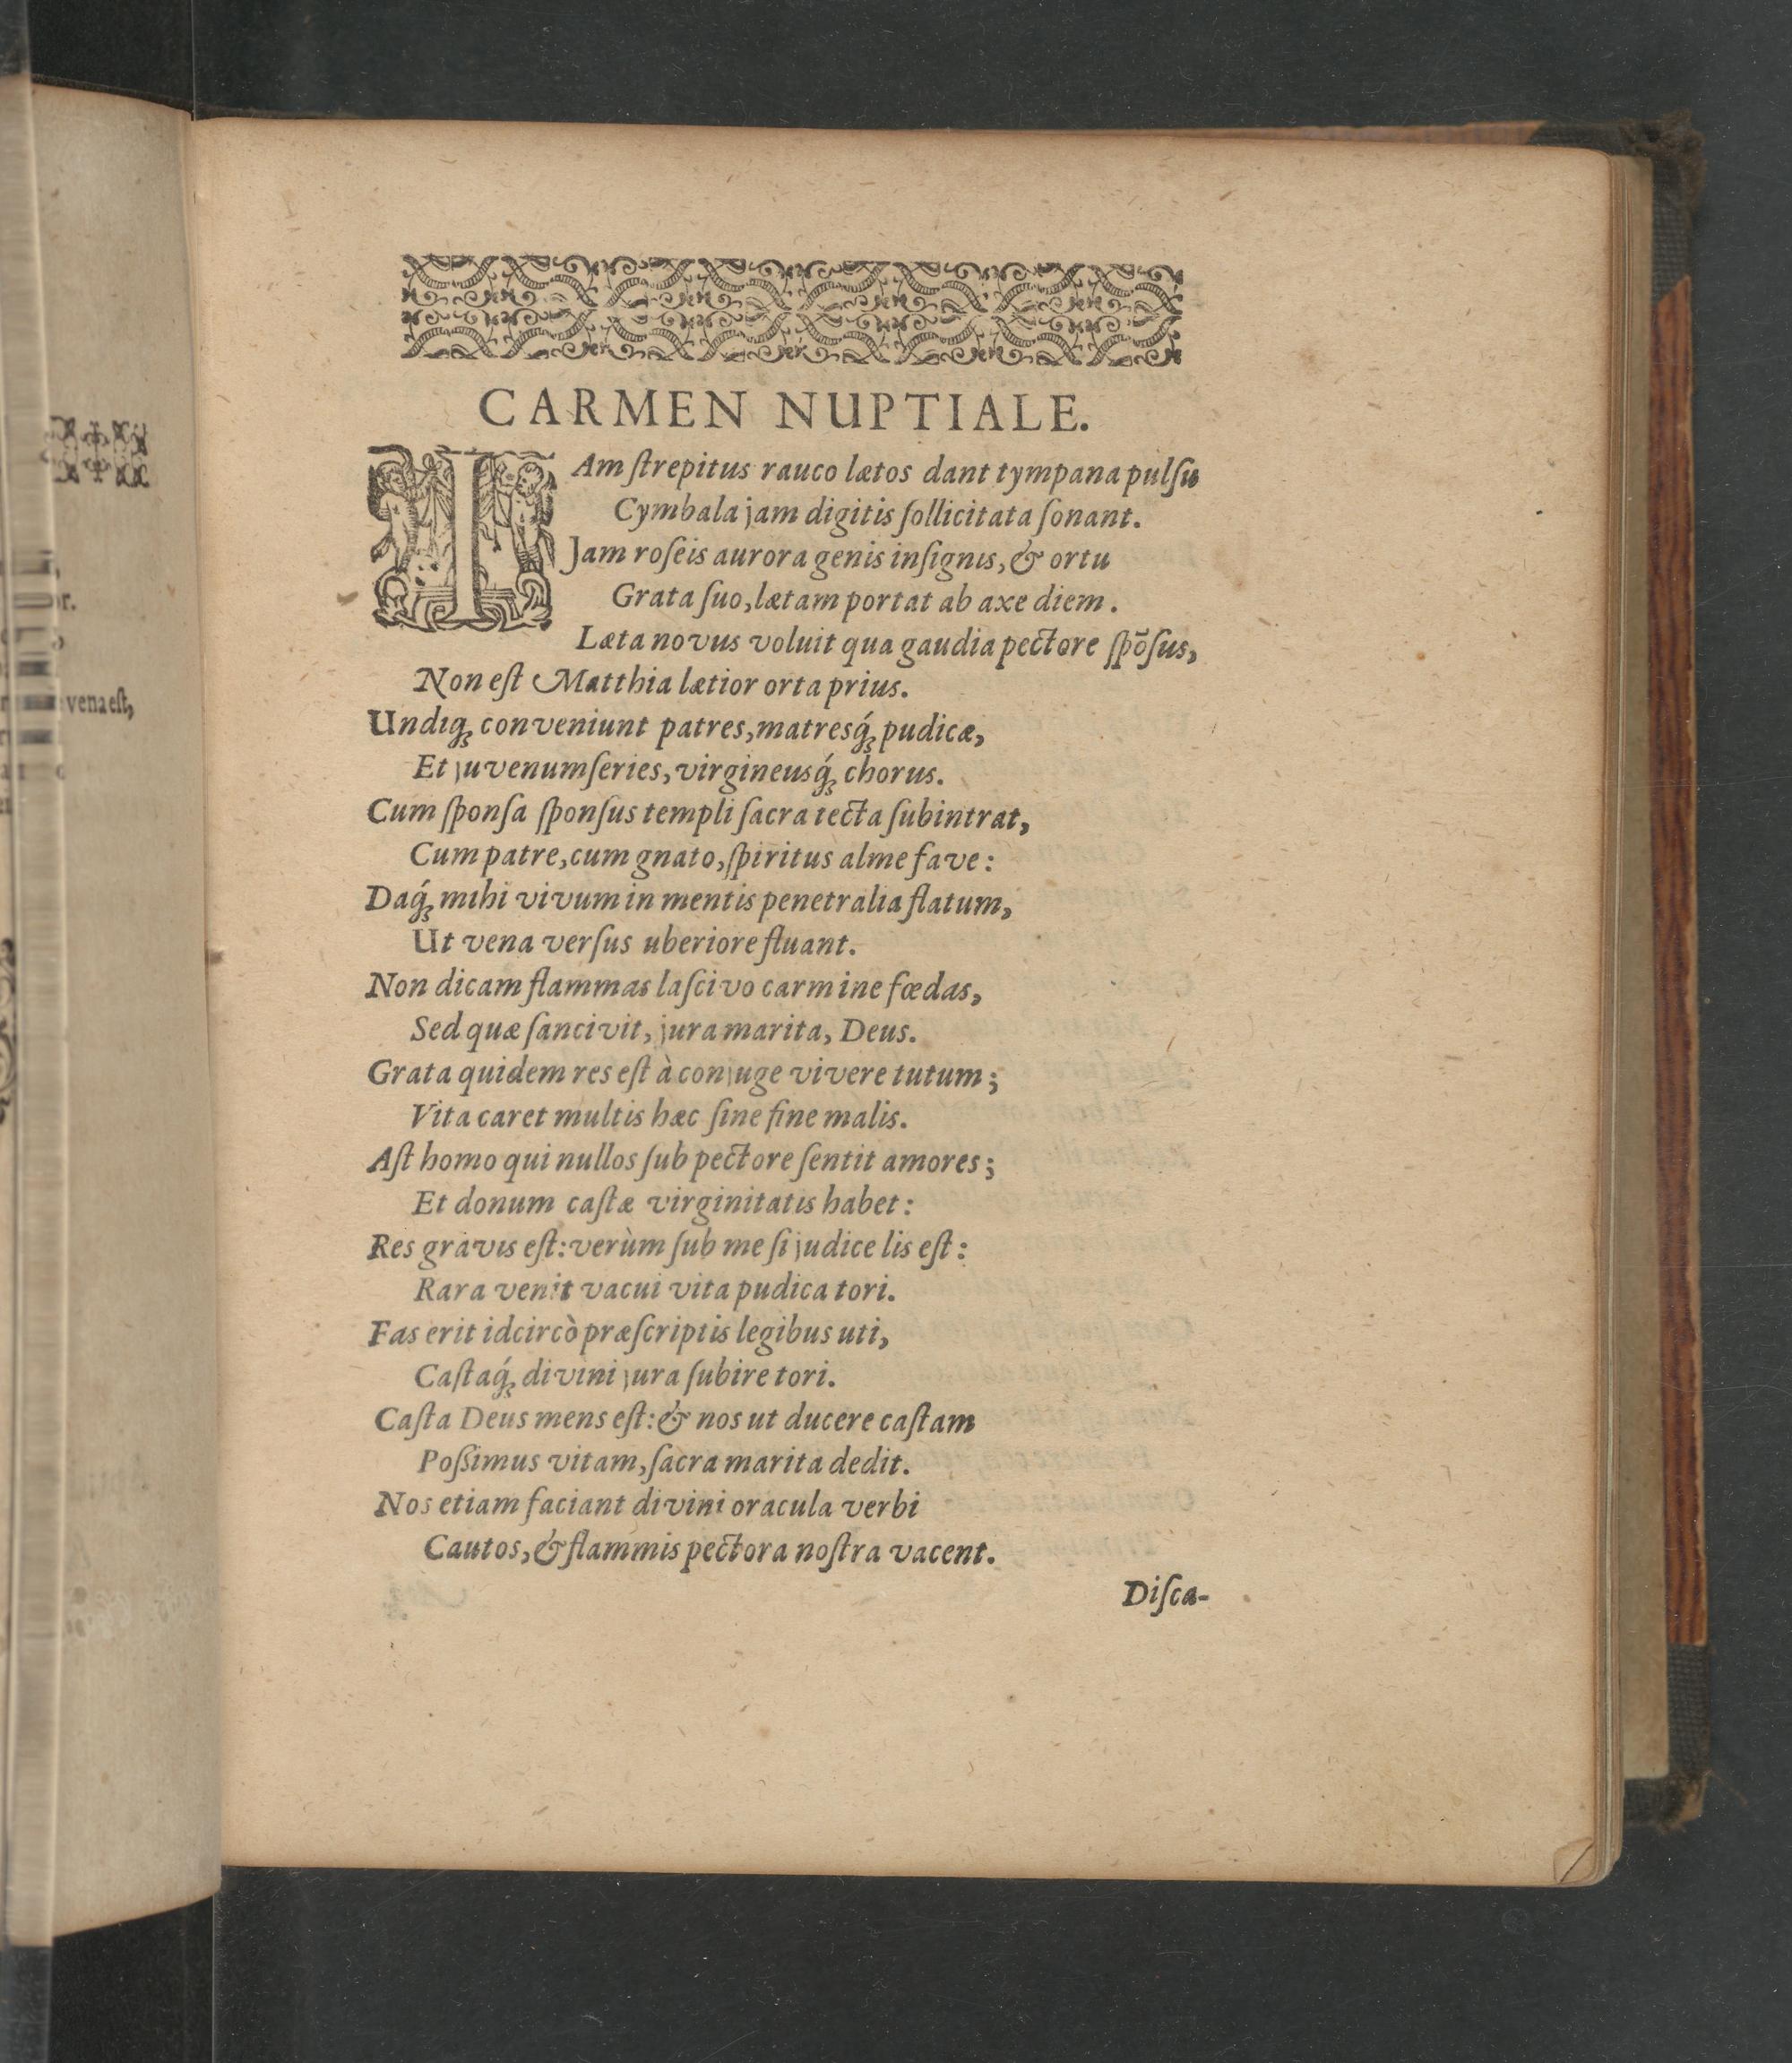 CARMEN NUPTIALE.
IAm ſtrepitus rauco lætos dant tympana pulſu
Cymbala jam digitis ſollicitata ſonant.
Jam roſeis aurora genis inſignis, & ortu
Grata ſuo, lætam portat ab axe diem.
Læta novus voluit qua gaudia pectore ſpõſus,
Non eſt Matthia lætior orta prius.
Undiq; conveniunt patres, matresq́; pudicæ,
Et juvenum ſeries, virgineusq́; chorus.
Cum ſponſa ſponſus templi ſacra tecta ſubintrat,
Cum patre, cum gnato, ſpiritus alme fave:
Daq́; mihi vivum in mentis penetralia flatum,
Ut vena verſus uberiore fluant.
Non dicam flammas laſcivo carmine fœdas,
Sed quæ ſancivit, jura marita, Deus.
Grata quidem res eſt à conjuge vivere tutum;
Vita caret multis hæc ſine fine malis.
Aſt homo qui nullos ſub pectore ſentit amores;
Et donum caſtæ virginitatis habet:
Res gravis eſt: verùm ſub me ſi judice lis eſt:
Rara venit vacui vita pudica tori.
Fas erit idcircò præſcriptis legibus uti,
Caſtaq́; divini jura ſubire tori.
Caſta Deus mens eſt: & nos ut ducere caſtam
Poſſimus vitam, ſacra marita dedit.
Nos etiam faciant divini oracula verbi
Cautos, & flammis pectora noſtra vacent.
Diſca-
r.
vena eſt,